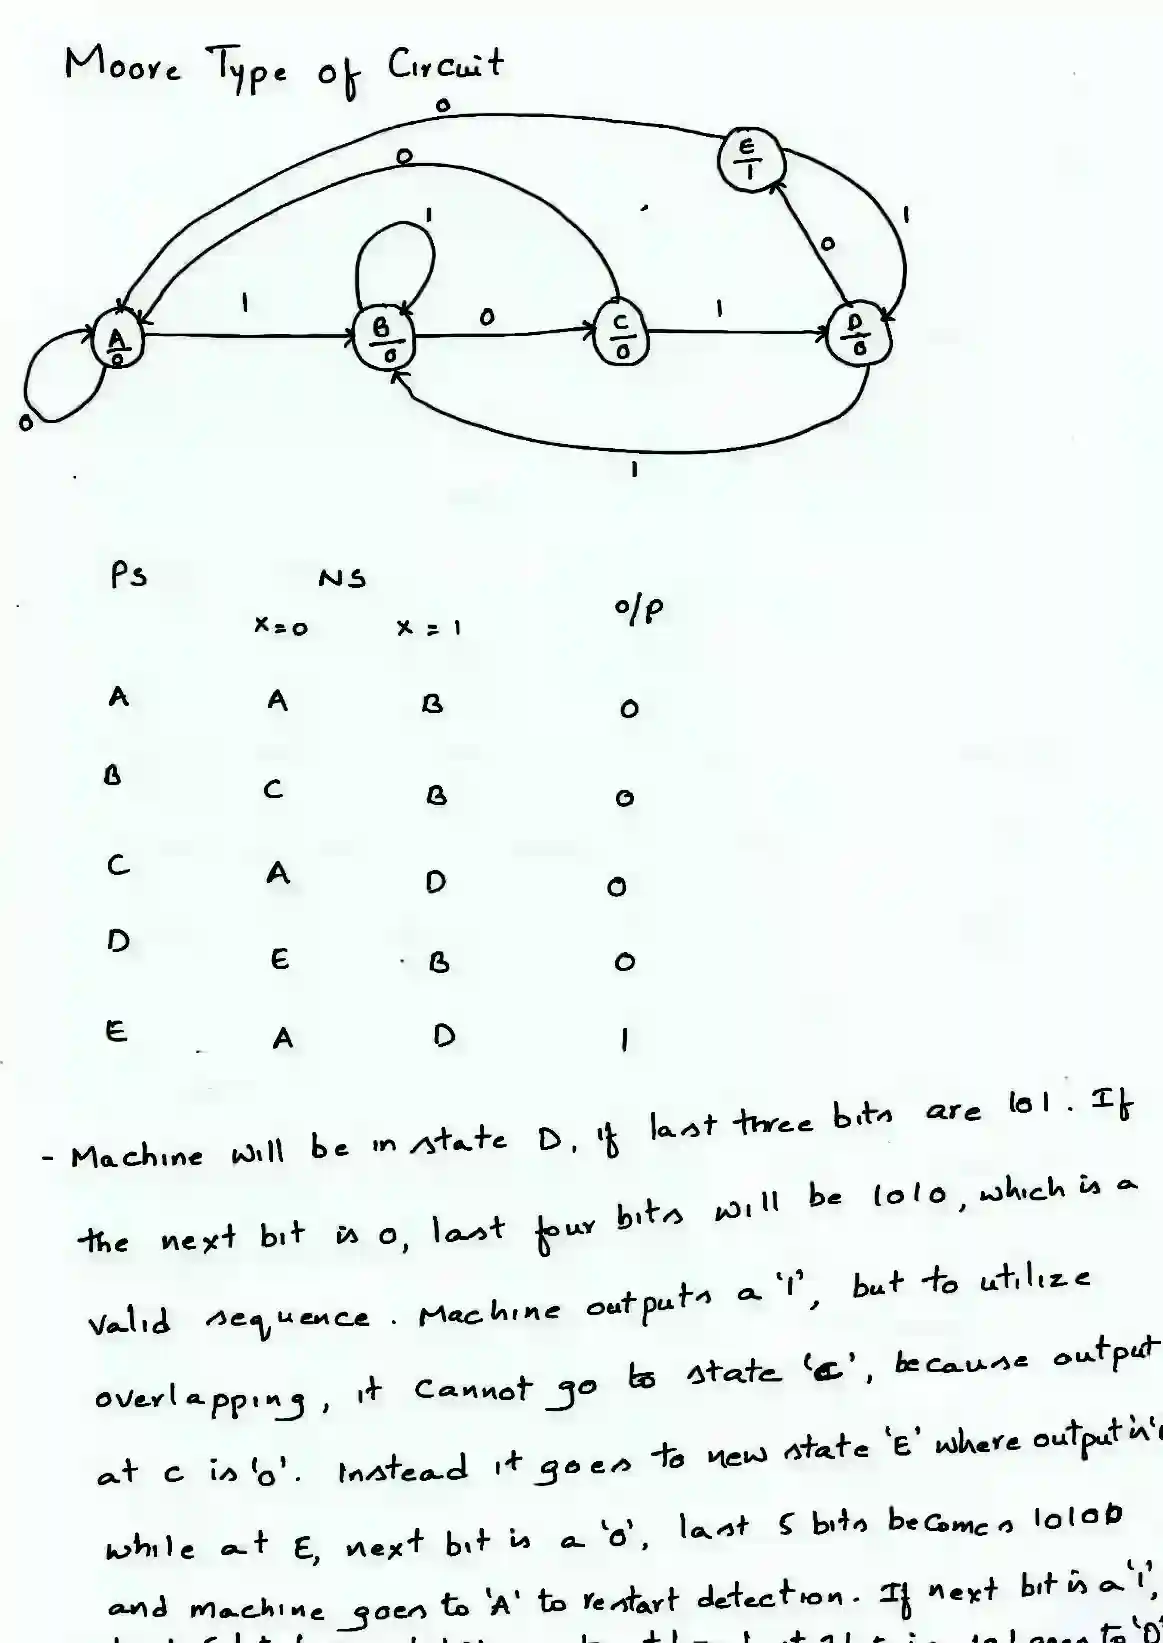 Moore Type of Circuit
0
0
E
1
1
1
0
1
0
1
A
0
B
0
C
0
D
0
0
1
PS NS o/p
X=0 X=1
A A B 0
B C B 0
C A D 0
D E B 0
E A D 1
- Machine will be in state D, if last three bits are 101. If
the next bit is 0, last four bits will be 1010, which is a
valid sequence. Machine outputs a '1', but to utilize
overlapping, it cannot go to state 'C', because output
at C is '0'. Instead it goes to new state 'E' where output is
while at E, next bit is a '0', last 5 bits becomes 10100
and machine goes to 'A' to restart detection. If next bit is a '1',
goes to 'D'